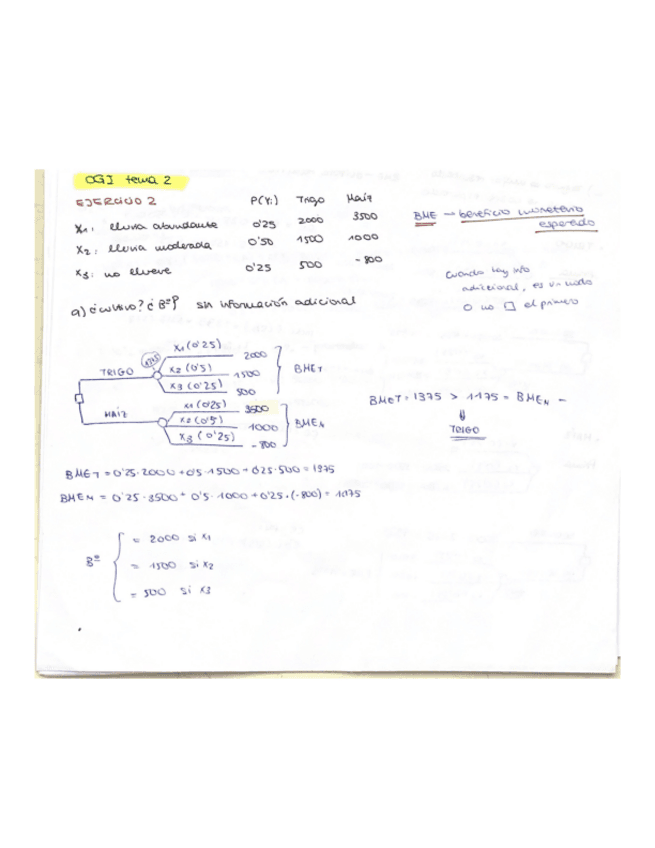 OGI tema 2
EJERCICIO 2 P(Xi) Trigo Maíz
X1: lluvia abundante 0'25 2000 3500
X2: lluvia moderada 0'50 1500 1000
X3: no llueve 0'25 500 -800
BME → beneficio monetario
esperado
Cuando hay info
adicional, es un nodo
O no □ el primero
a) ¿cultivo? ¿Bº? sin información adicional
TRIGO
X1 (0'25) 2000
X2 (0'5) 1500
X3 (0'25) 500
BMET
MAÍZ
X1 (0'25) 3500
X2 (0'5) 1000
X3 (0'25) -800
BMEM
BMET = 1375 > 1175 = BMEM -
⇓
TRIGO
BMET = 0'25·2000 + 0'5·1500 + 0'25·500 = 1375
BMEM = 0'25·3500 + 0'5·1000 + 0'25·(-800) = 1175
Bº
= 2000 si X1
= 1500 si X2
= 500 si X3